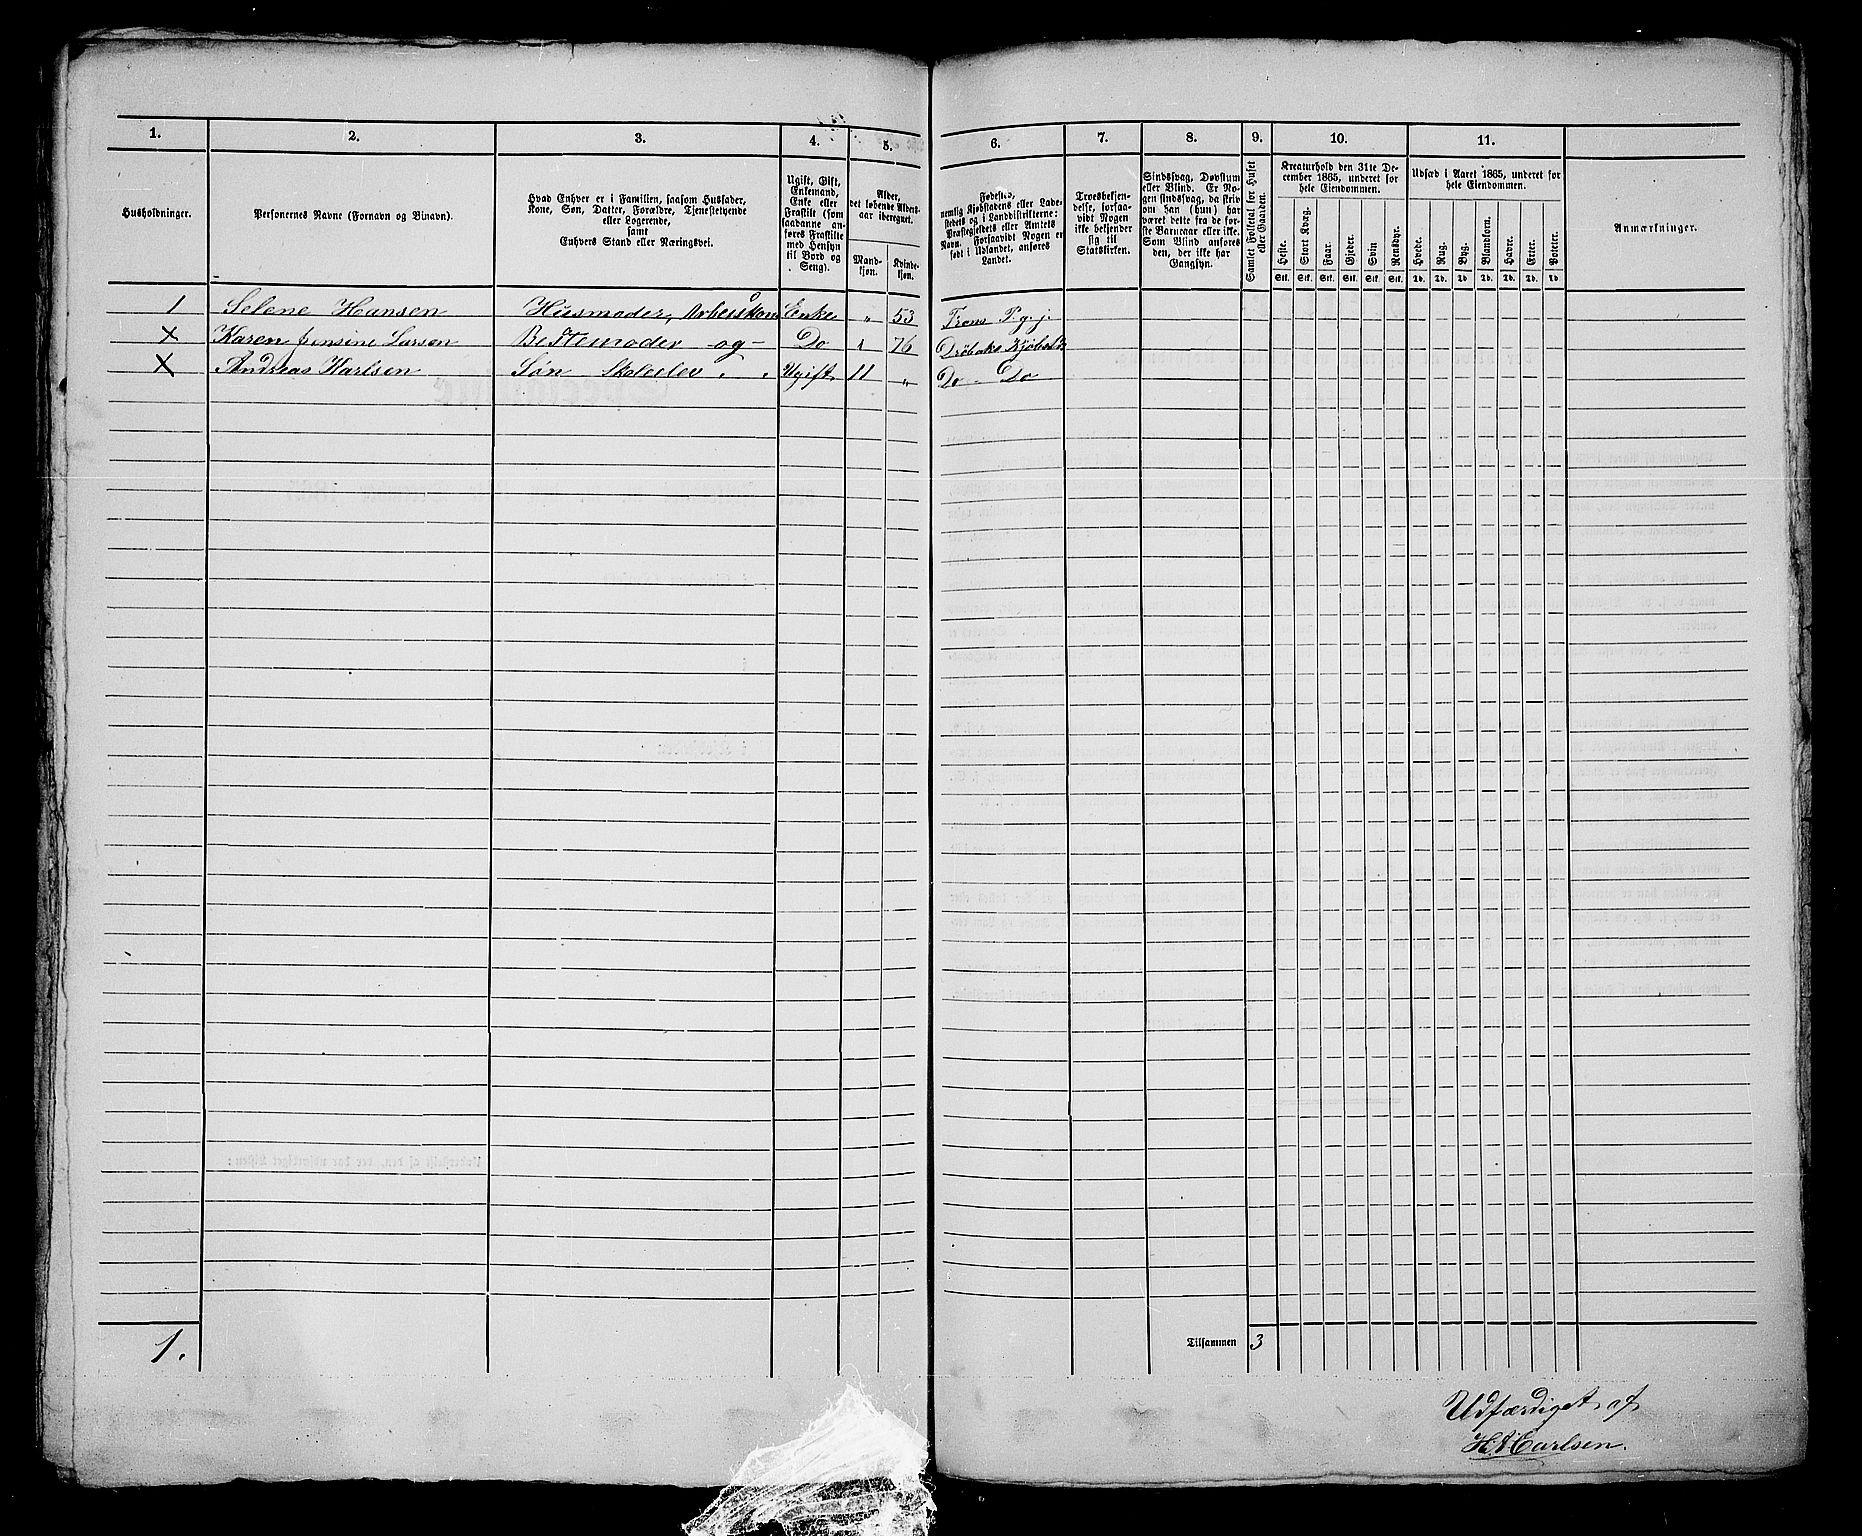 1.
2.
3.
4.
5.
6.
7.
8.
9.
10.
11.
Husholdninger.
Personernes Navne (Fornavn og Binavn).
Hvad Enhver er i Familien, saasom Husfader,
Kone, Søn, Datter, Forældre, Tjenestetyende
eller Logerende,
samt
Enhvers Stand eller Næringsvei.
Ugift, Gift,
Enkemand,
Enke eller
Fraskilt (som
saadanne an-
føres Fraskilte
med Hensyn
til Bord og
Seng).
Alder,
det løbende Alders-
aar iberegnet.
Mand-
kjøn.
Kvinde-
kjøn.
Fødested,
nemlig Kjøbstadens eller Lade-
stedets og i Landdistrikterne:
Præstegjeldets eller Amtets
Navn. Forsaavidt Nogen er
født i Udlandet, anføres
Landet.
Troesbekjen-
delse, forsaa-
vidt Nogen
ikke bekjender
sig til
Statskirken.
Sindssvag, Døvstum
eller Blind. Er No-
gen sindssvag, da skriv
om han (hun) har
været dette fra de før-
ste Barneaar eller ikke.
Som Blind anføres
den, der ikke har
Gangsyn.
Samlet Folketal for Huset
eller Gaarden.
Kreaturhold den 31te De-
cember 1865, underet for
hele Eiendommen.
Heste.
Stort Kvæg.
Faar.
Gjeder.
Svin
Rensdyr.
Stk. Stk. Stk. Stk. Stk. Stk.
Udsæd i Aaret 1865, underet for
hele Eiendommen.
Hvede.
Rug.
Byg.
Blandkorn.
Havre.
Erter.
Poteter.
Td. Td. Td Td. Td. Td. Td
Anmærkninger.
1 Selene Hansen Husmoder, Arbeiskone Enke „ 53 Frons P.g.j.
X Karen Jensine Larsen Bestemoder -og- Do „ 76 Drøbaks Kjøbst
X Andreas Karlsen Søn Skoleelev Ugift 11 „ Do - Do
1.
Tilsammen 3
Udfærdiget af
H. Carlsen.